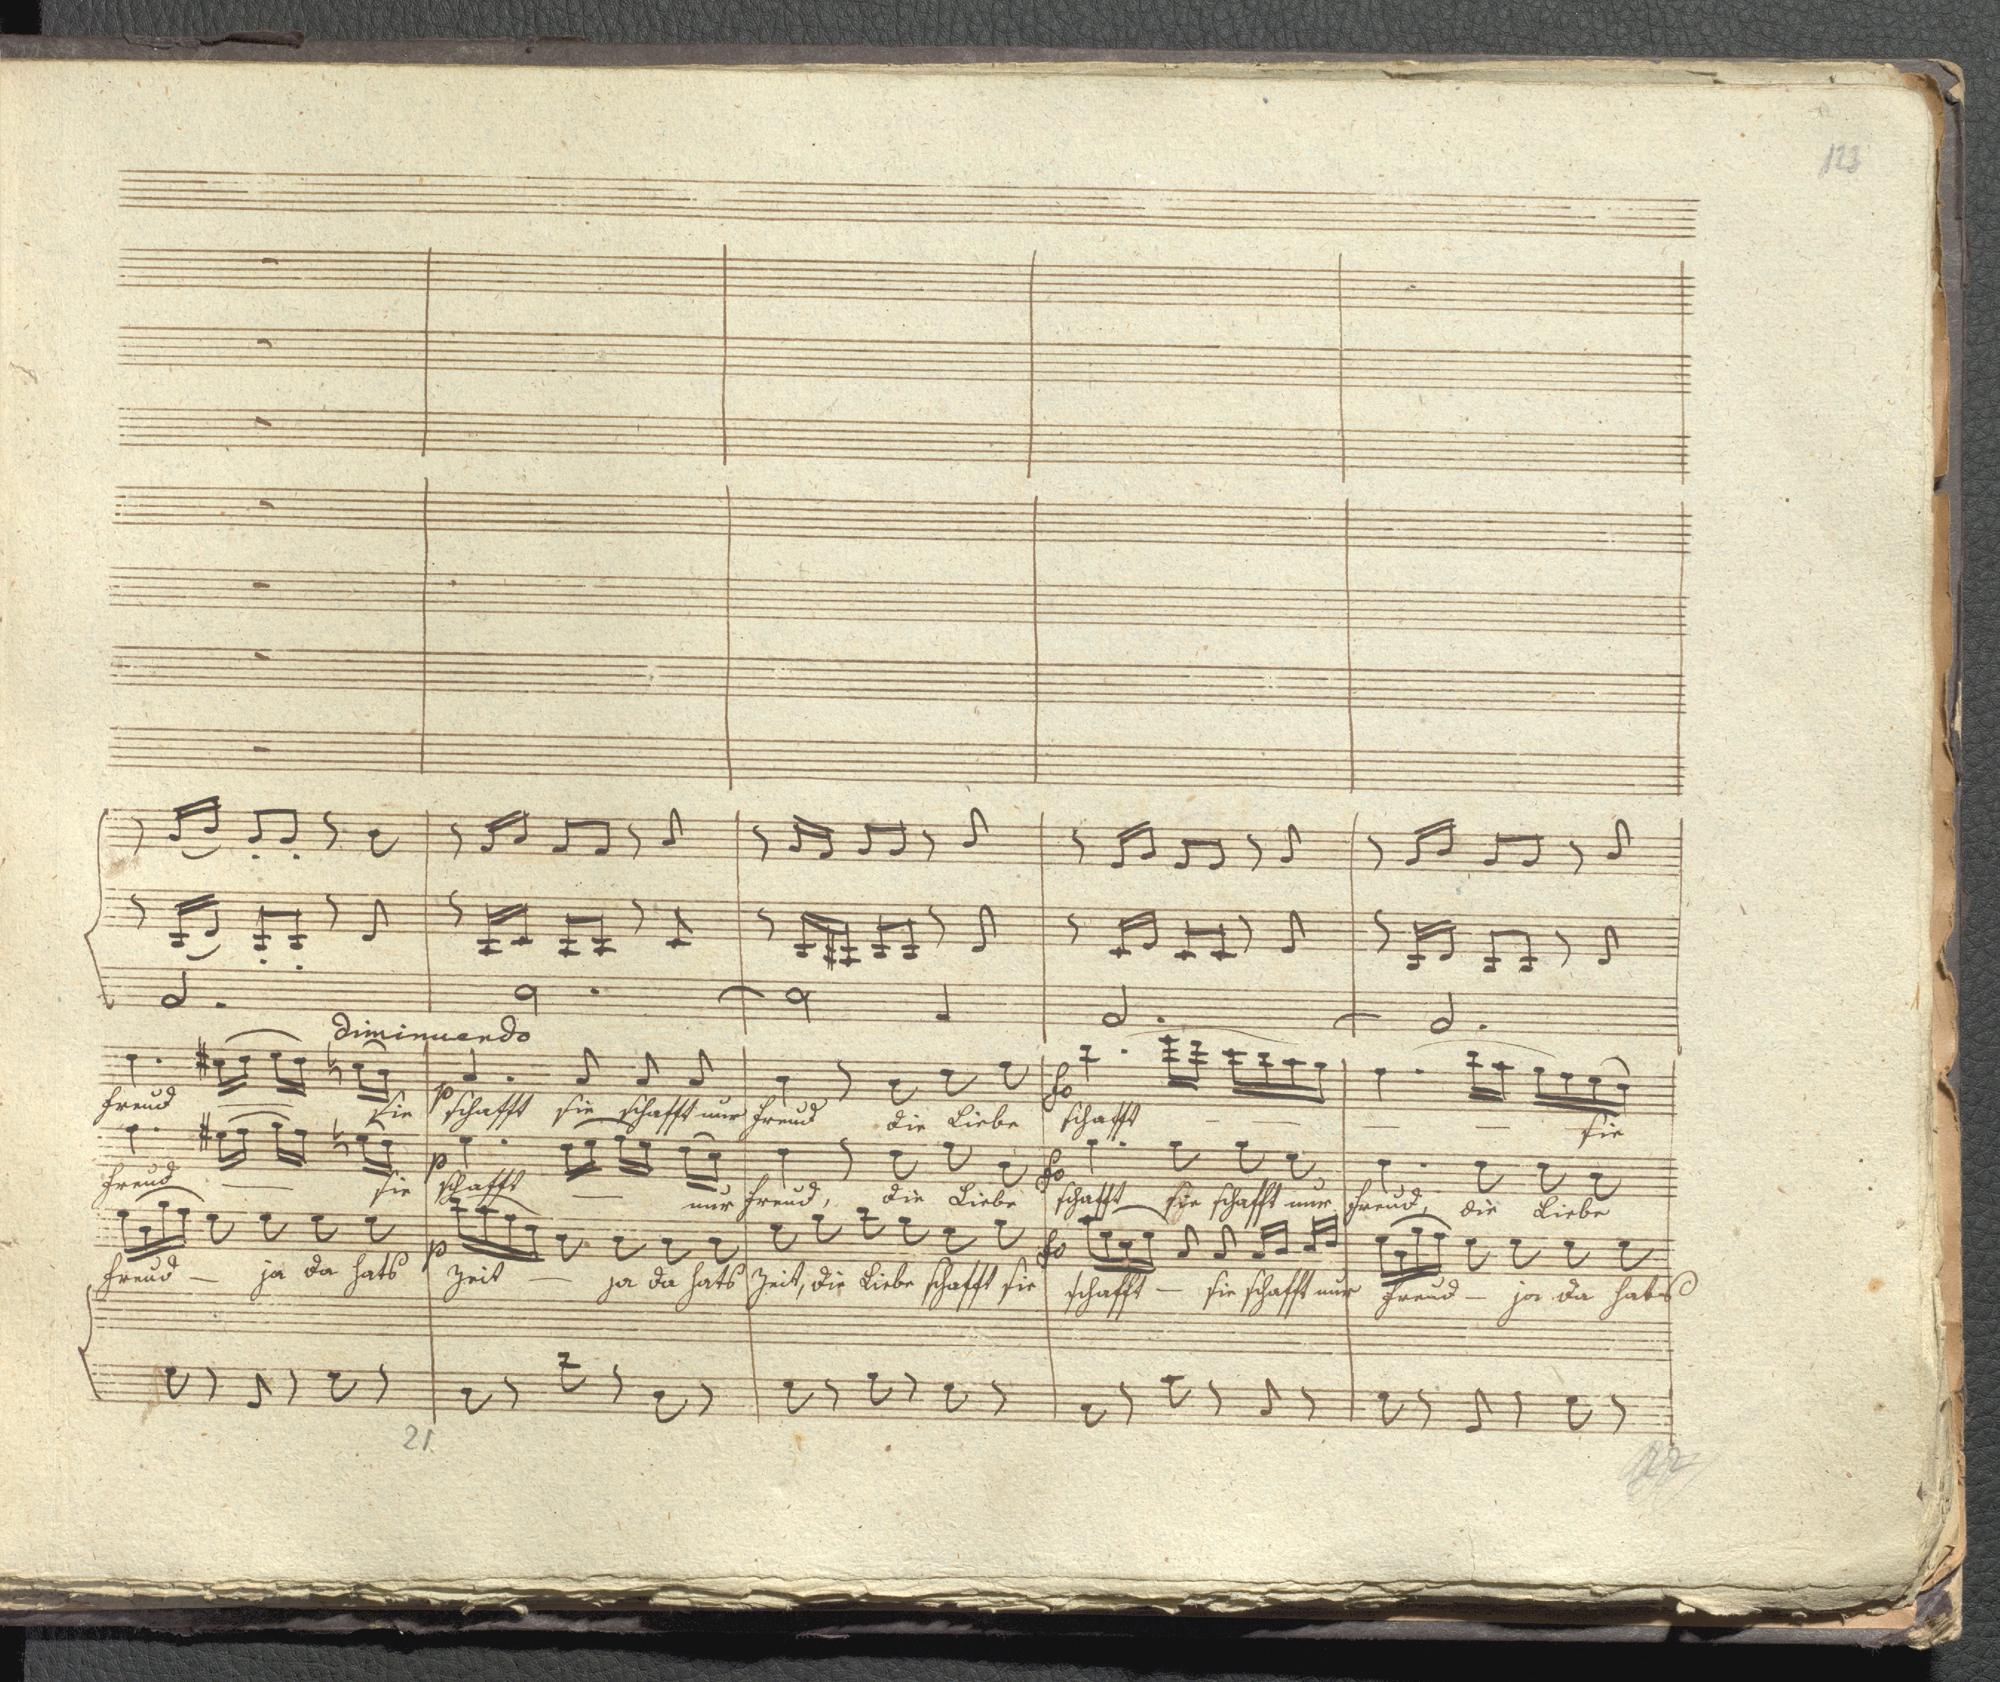 123
Diminuendo
Freud — — sie p schafft sie schafft nur Freud die Liebe fo schafft — — — — — sie
Freud — — sie p schafft — nur Freud, die Liebe fo schafft sie schafft nur Freud, die Liebe
Freud — ja da hats p Zeit — ja da hats Zeit, die Liebe schafft sie fo schafft — sie schafft nur Freud — ja da hats
21